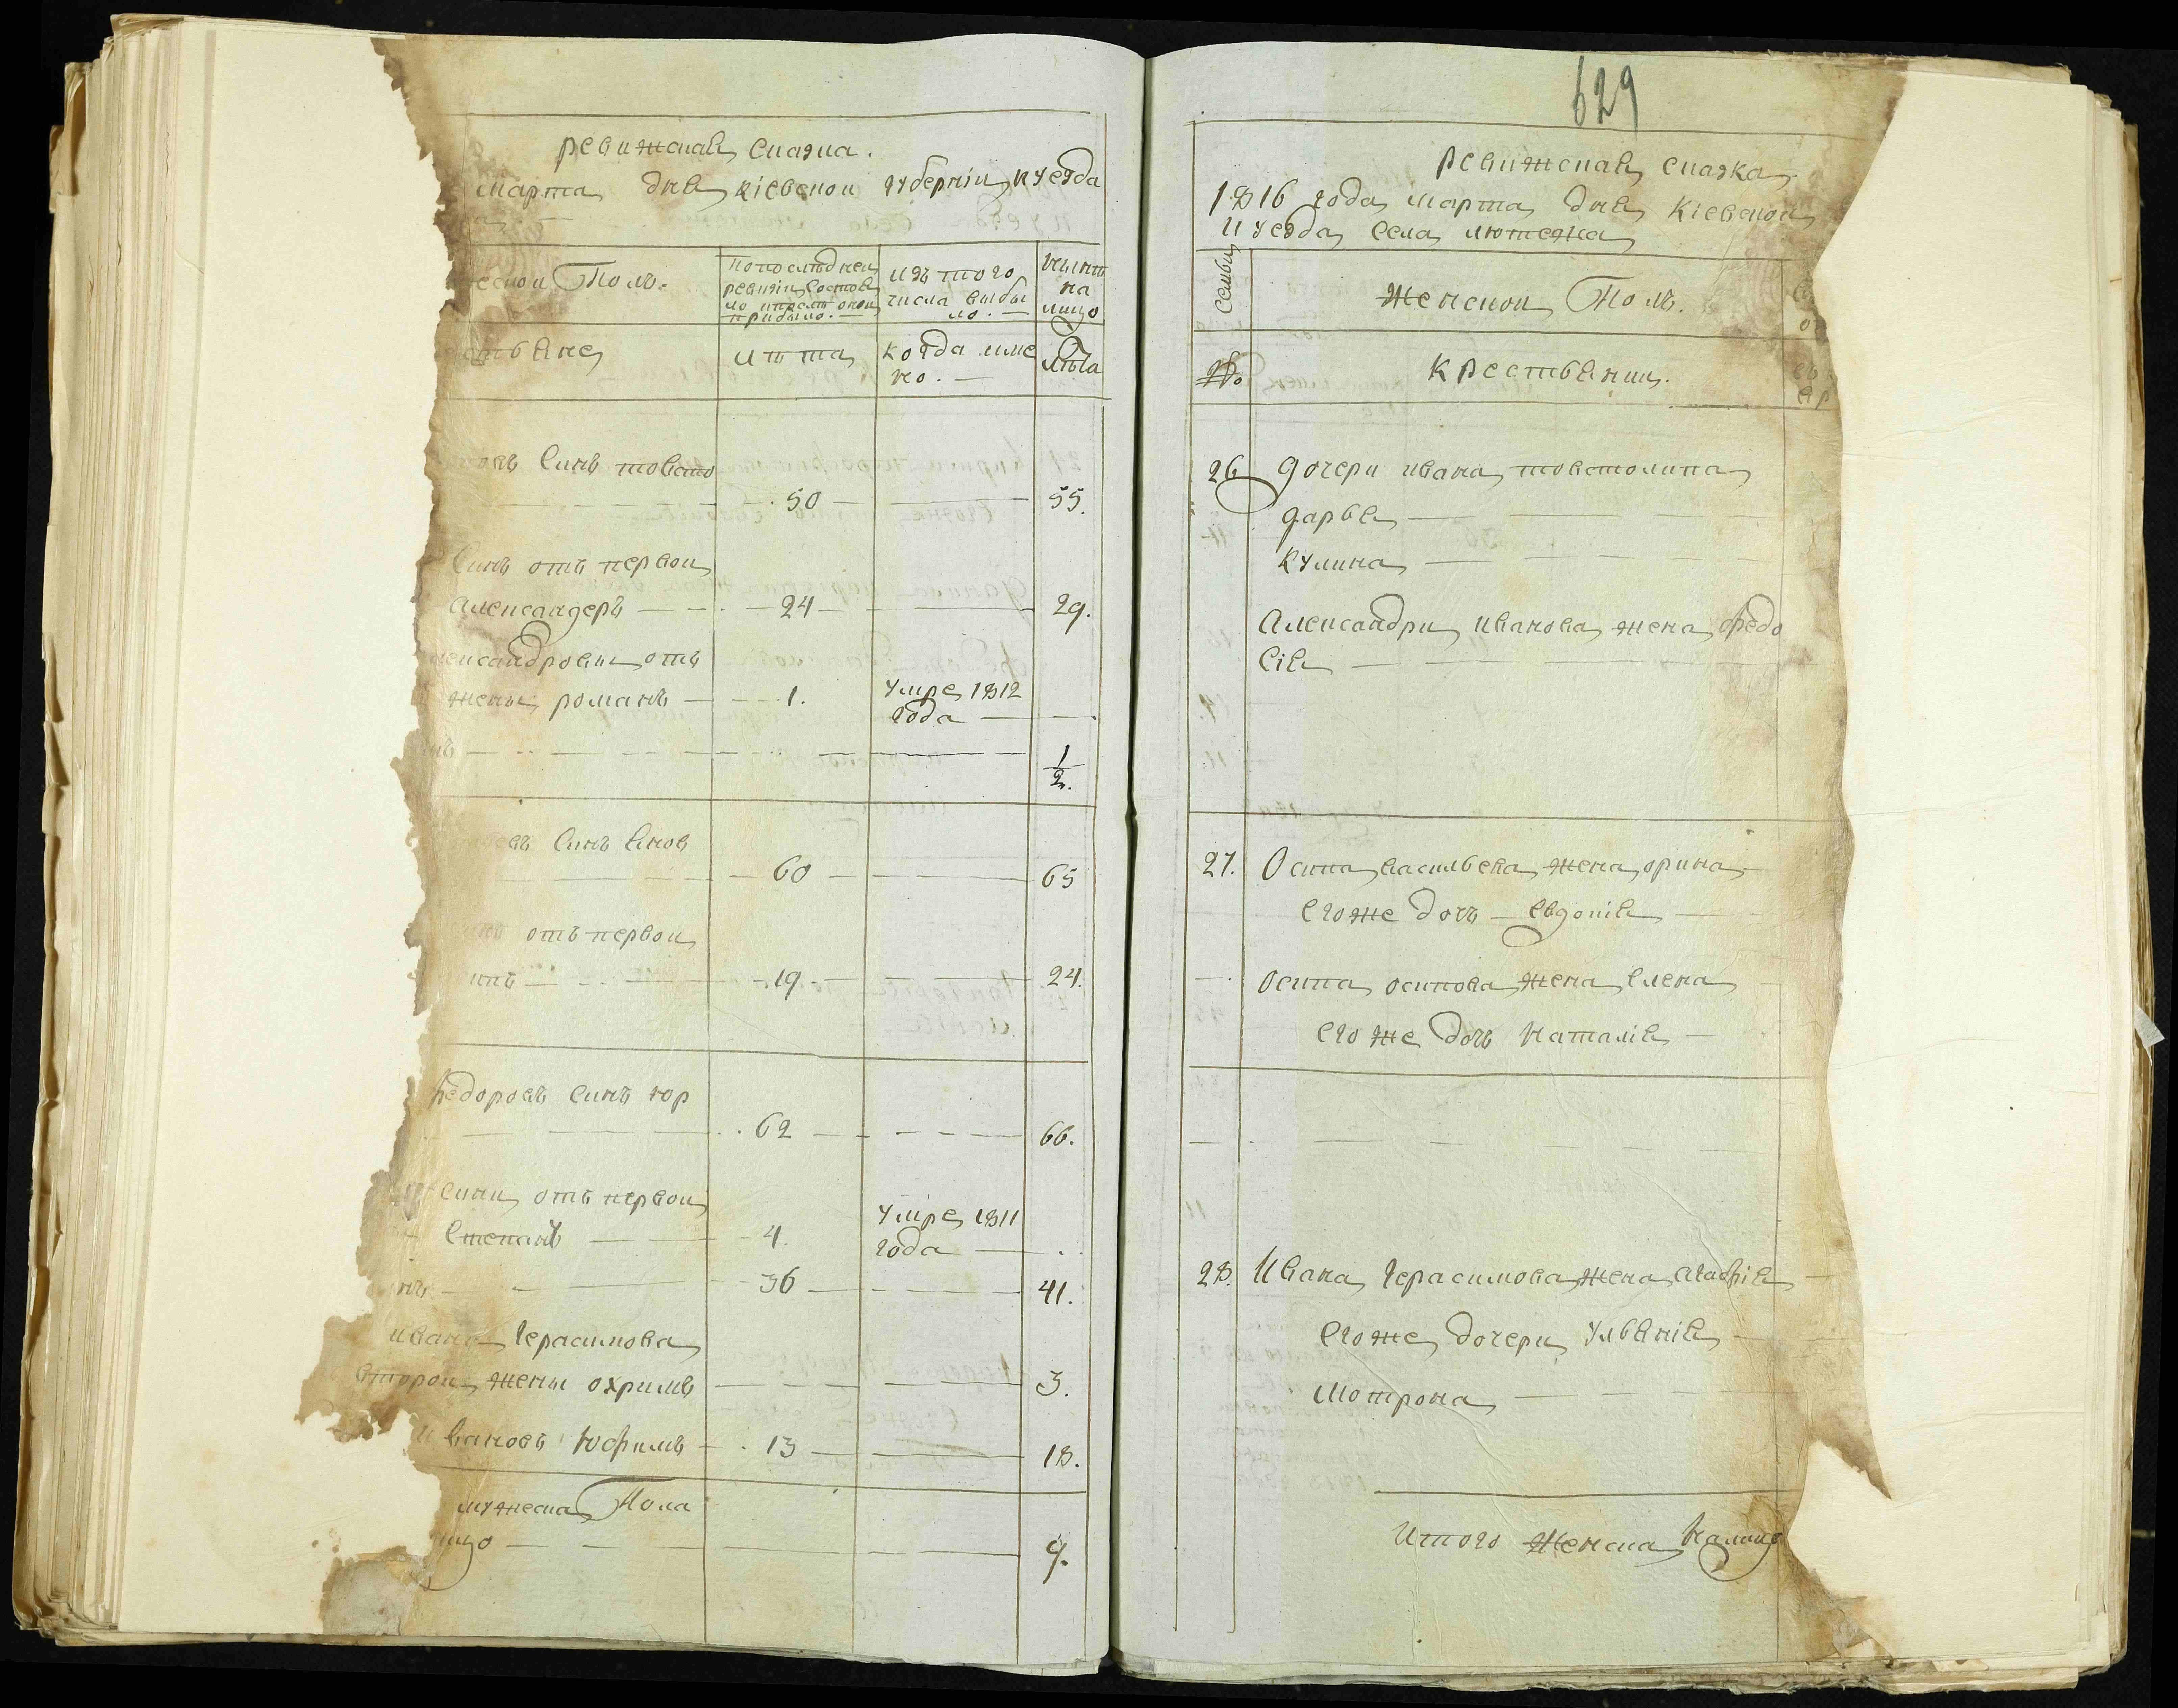 ревижская сказка.
марта дня кіевской губерніи и уезда
Полъ.
Попоследней
ревизіи состоя
ло и после оной
прибыло.
изъ того
числа выбы
ло.
ныне
на
лицо
лета
когда име
но.
лета
овъ синъ товсто
50
55.
синъ отъ первои
александеръ
24
29.
отъ
жены романъ
1.
умре 1812
года
1/2.
синъ
60
65
отъ первои
19
24.
федоровъ синъ гор
62
66.
сини отъ первои
степанъ
4.
умре 1811
года
36
41.
ивана герасимова
второй жены охримъ
3.
ивановъ юфимъ
13
18.
мужеска Пола
9.
629
ревижская сказка
1816 года марта дня кіевской
и уезда села лютежа
семьи
женской Полъ.
№.
крестьянки.
26
дочери ивана товстолипа
дарья
кулина
александри иванова жена федо
сія
27.
осипа васильева жена орина
его же дочь евдокія
осипа осипова жена елена
его же дочь наталія
28.
ивана герасимова жена агафія
его же дочери ульянія
мотрона
итого женска налицо